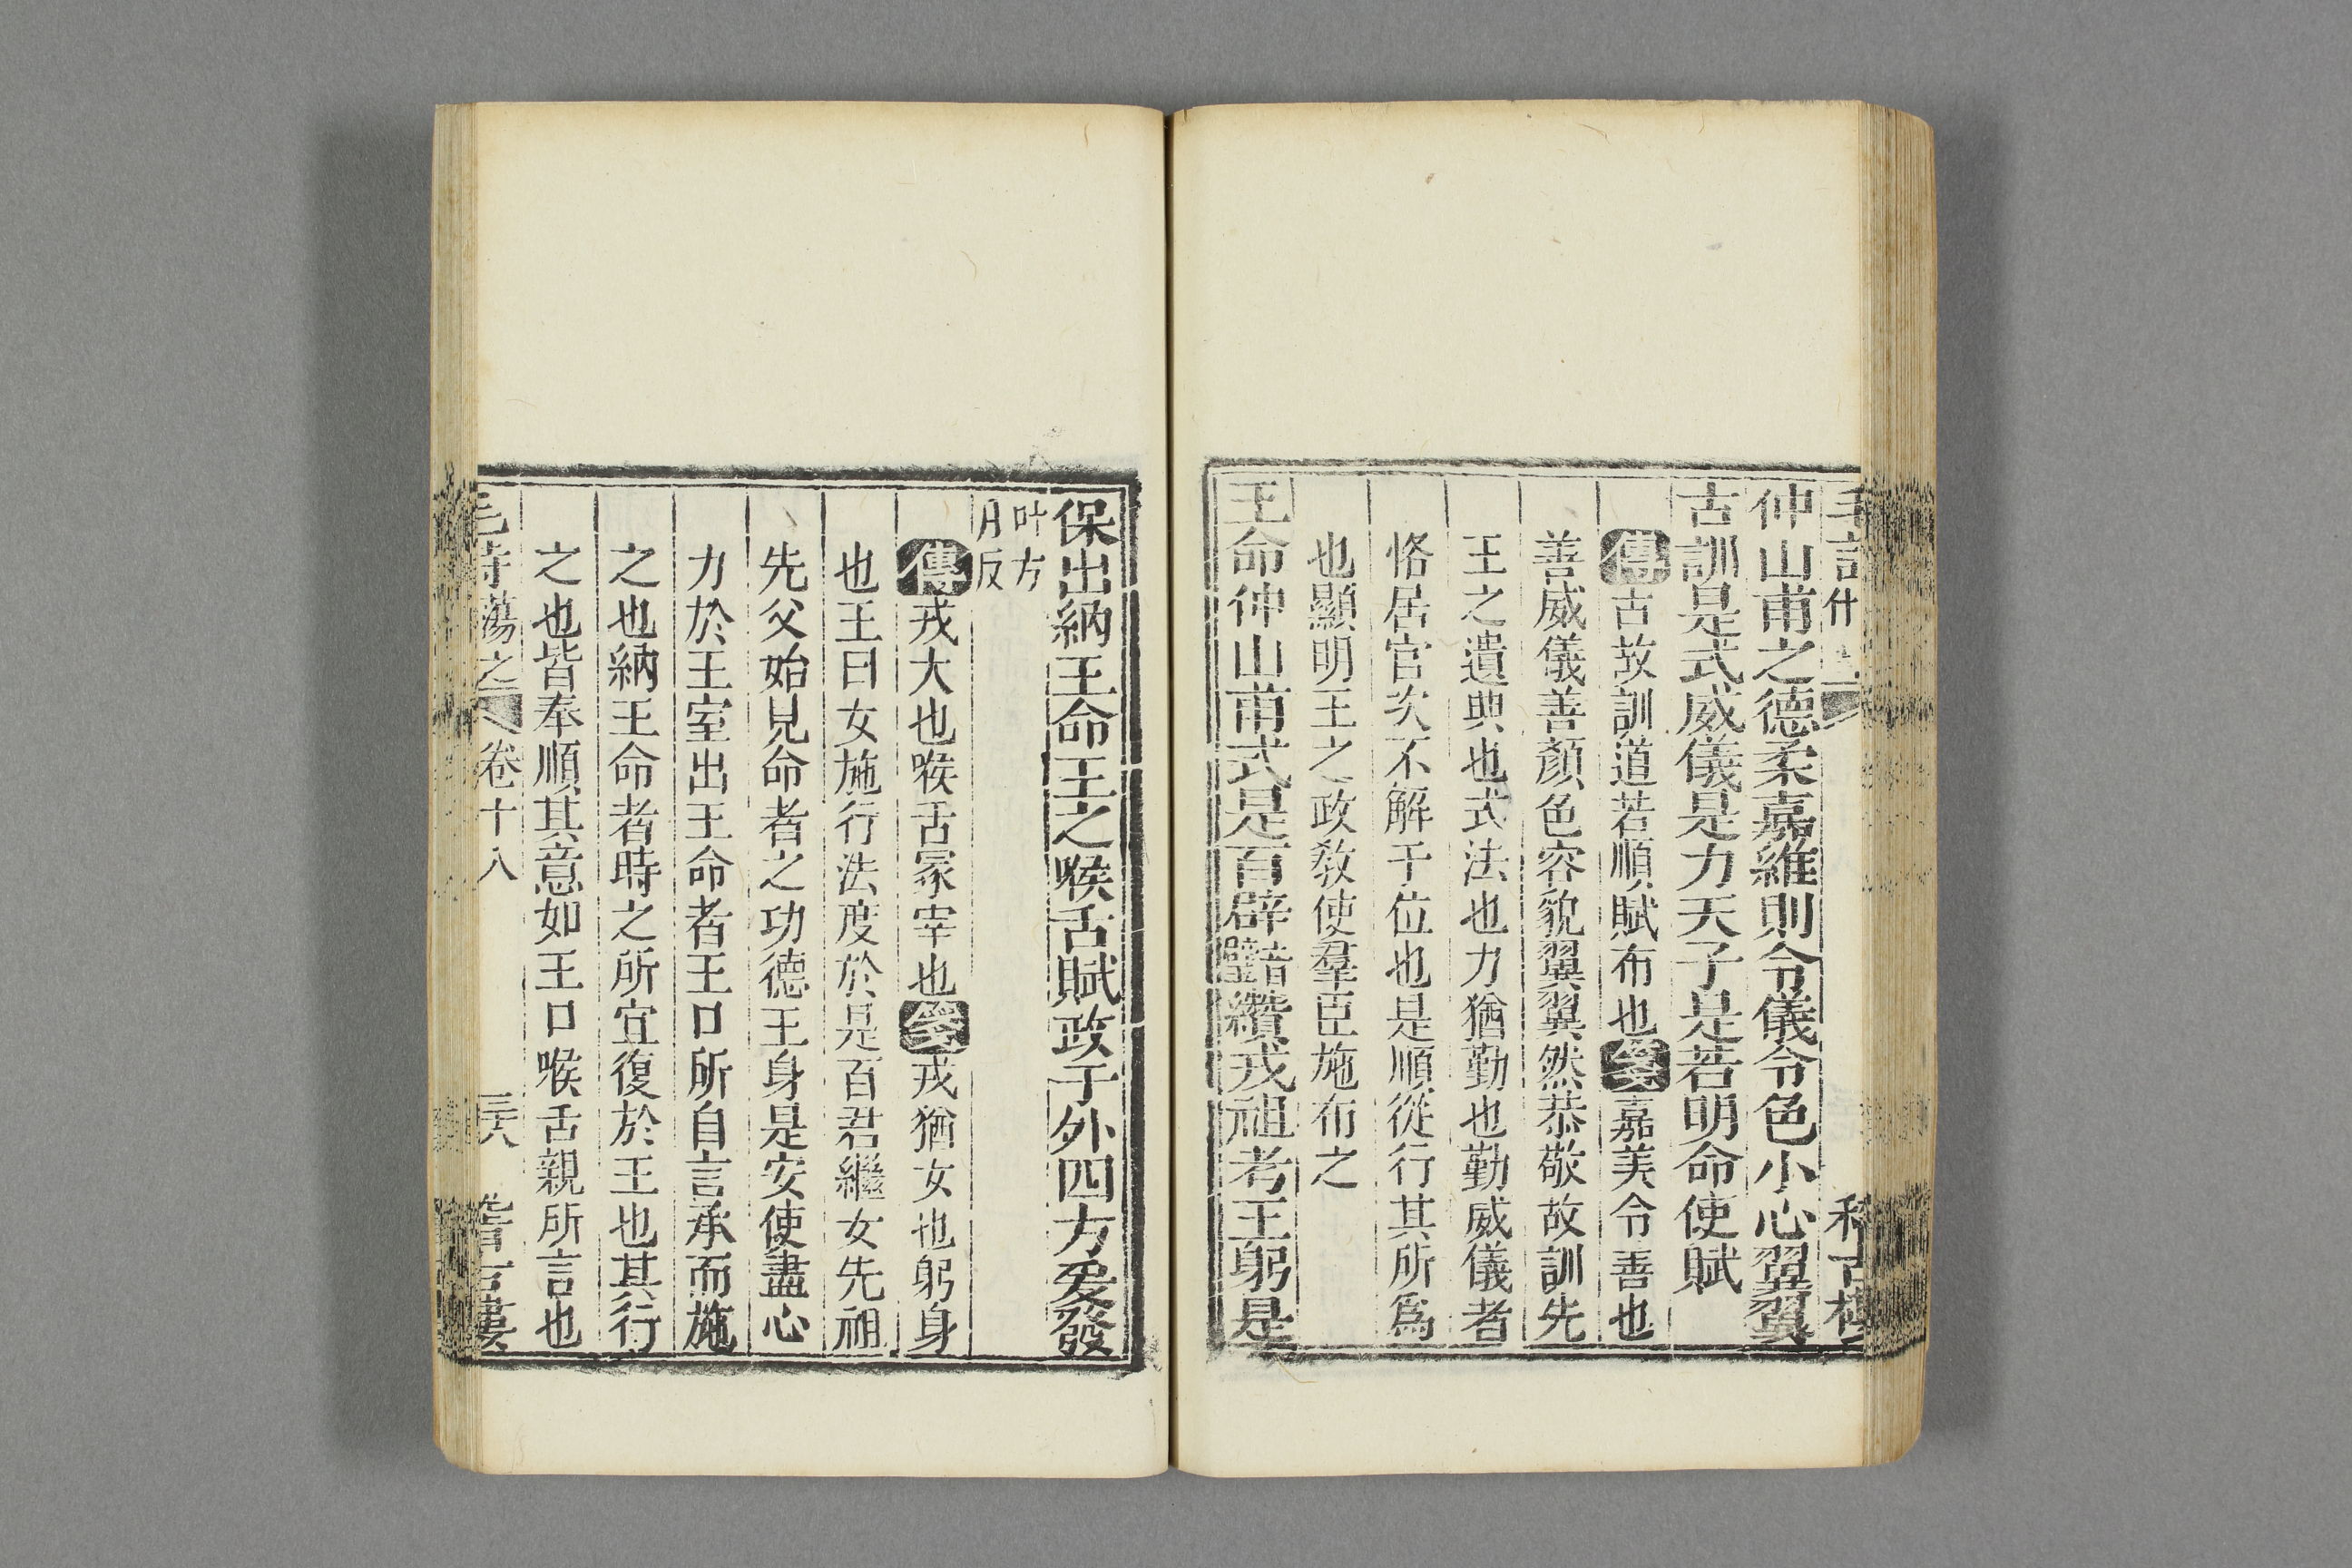 仲山甫之德柔嘉維則令儀令色小心翼翼
古訓是式威儀是力天子是若明命使賦
傳古故訓道若順賦布也箋嘉美令善也
善威儀善顏色容貌翼翼然恭敬故訓先
王之遺典也式法也力猶勤也勤威儀者
恪居官次不解于位也是順從行其所為
也顯明王之政教使羣臣施布之
王命仲山甫式是百辟音璧纘戎祖考王躬是
保出納王命王之喉舌賦政于外四方爰發
叶方
月反
傳戎大也喉舌冢宰也箋戎猶女也躬身
也王曰女施行法度於是百君繼女先祖
先父始見命者之功德王身是安使盡心
力於王室出王命者王口所自言承而施
之也納王命者時之所宜復於王也其行
之也皆奉順其意如王口喉舌親所言也
毛詩蕩之 卷十八 三六